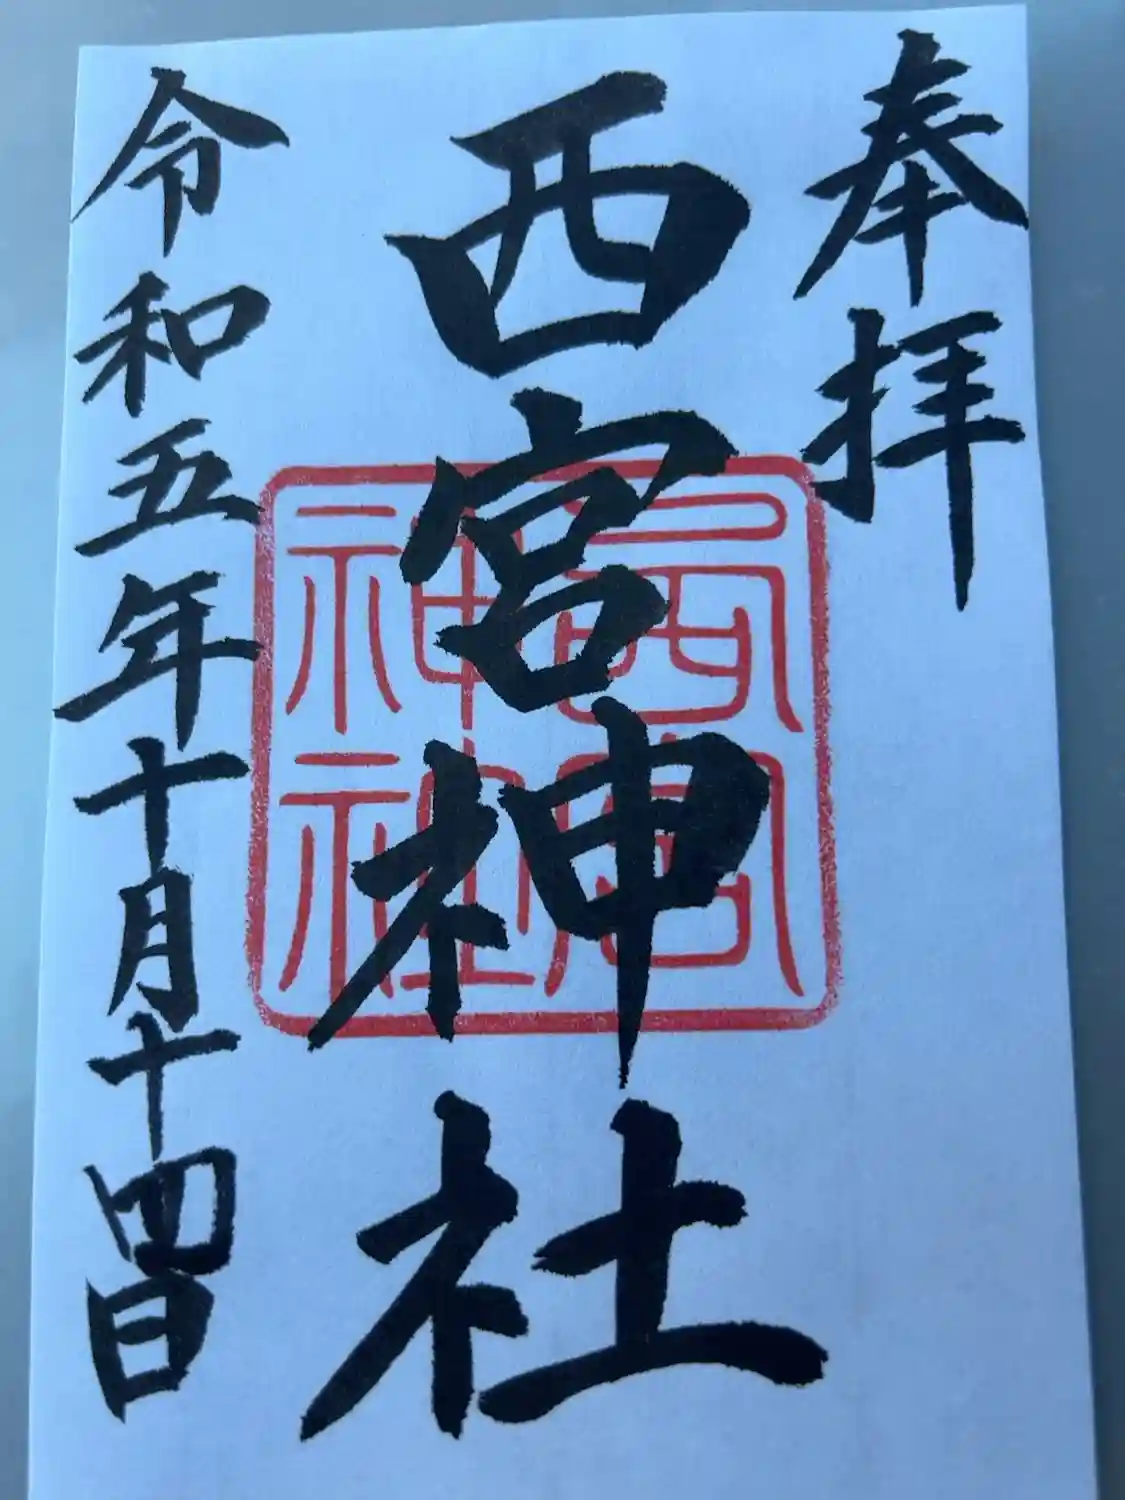 奉拝
西宮神社
令和五年十月十四日
西宮
神社